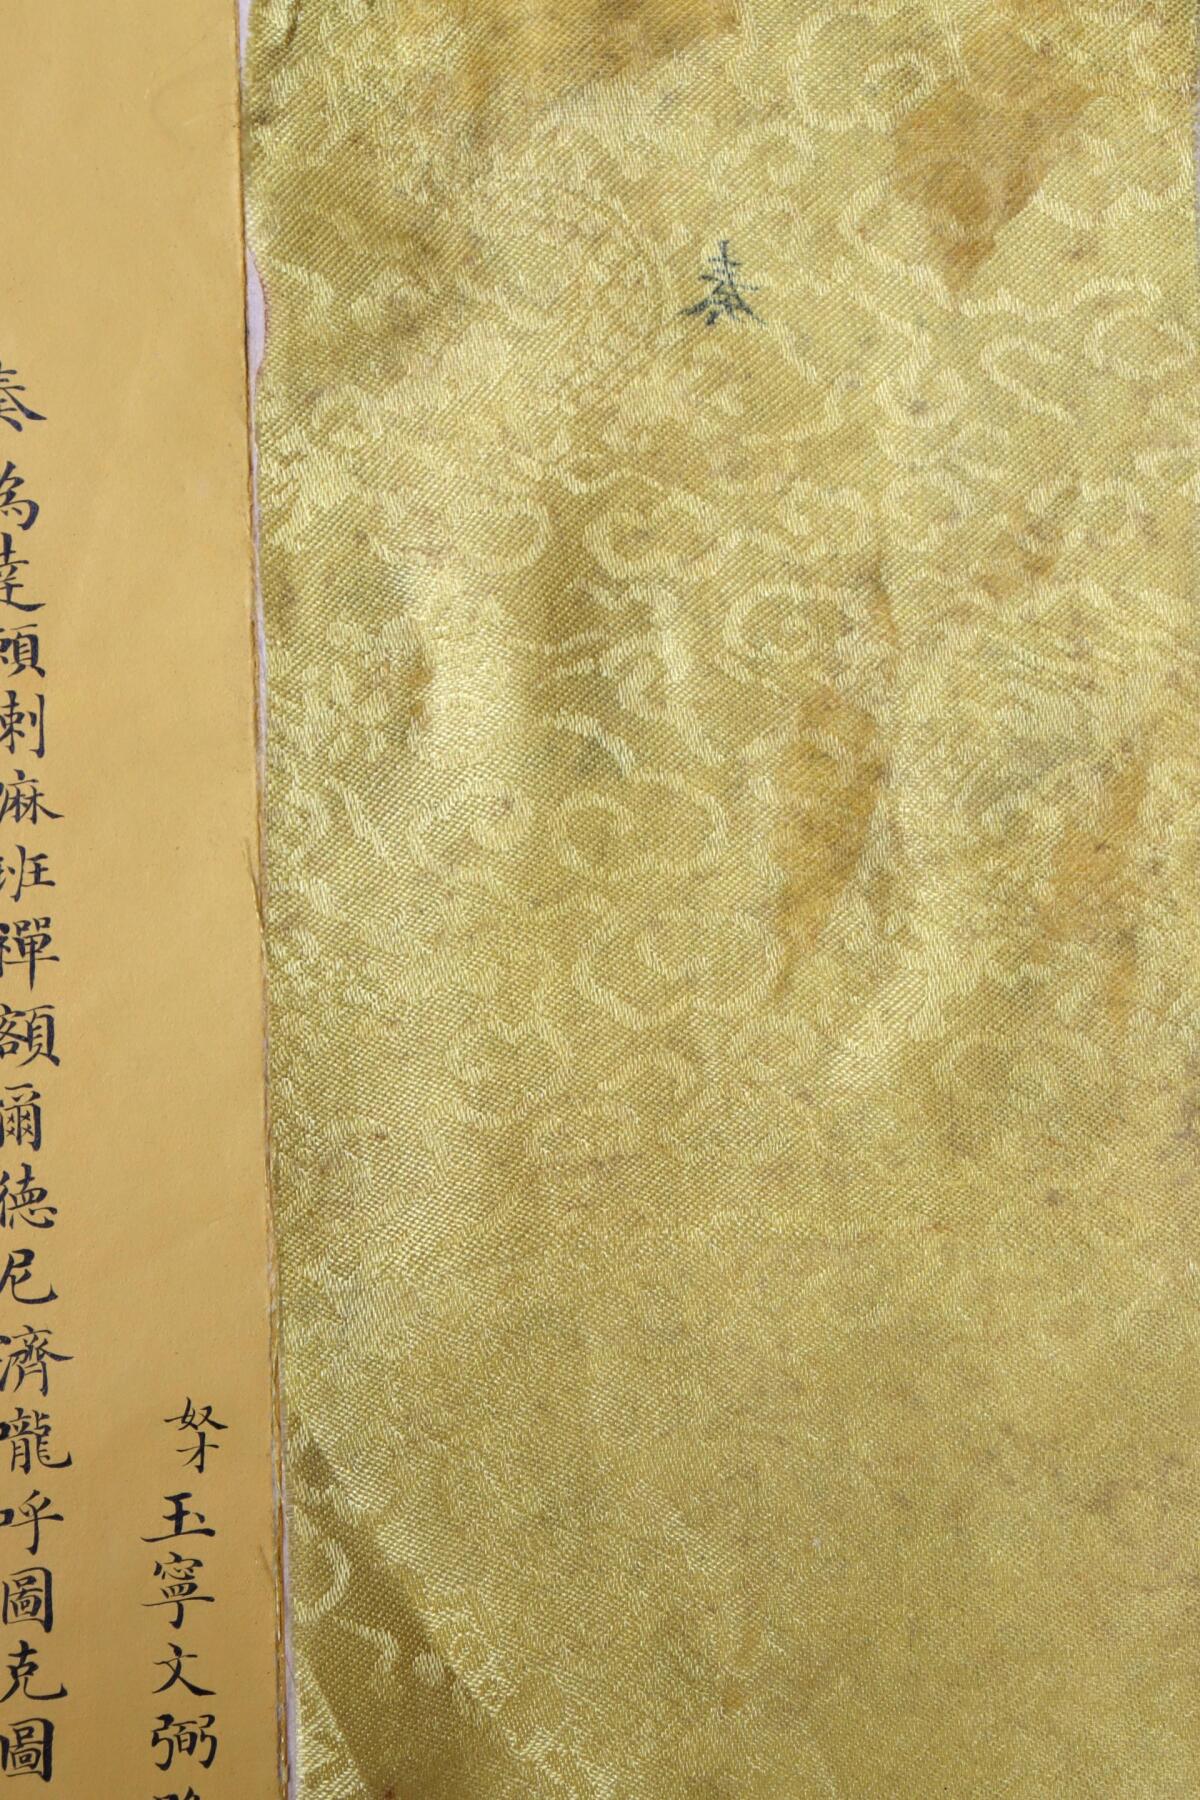 奏
奴才玉寧文弼
奏為達賴喇嘛班禪額爾德尼濟嚨呼圖克圖